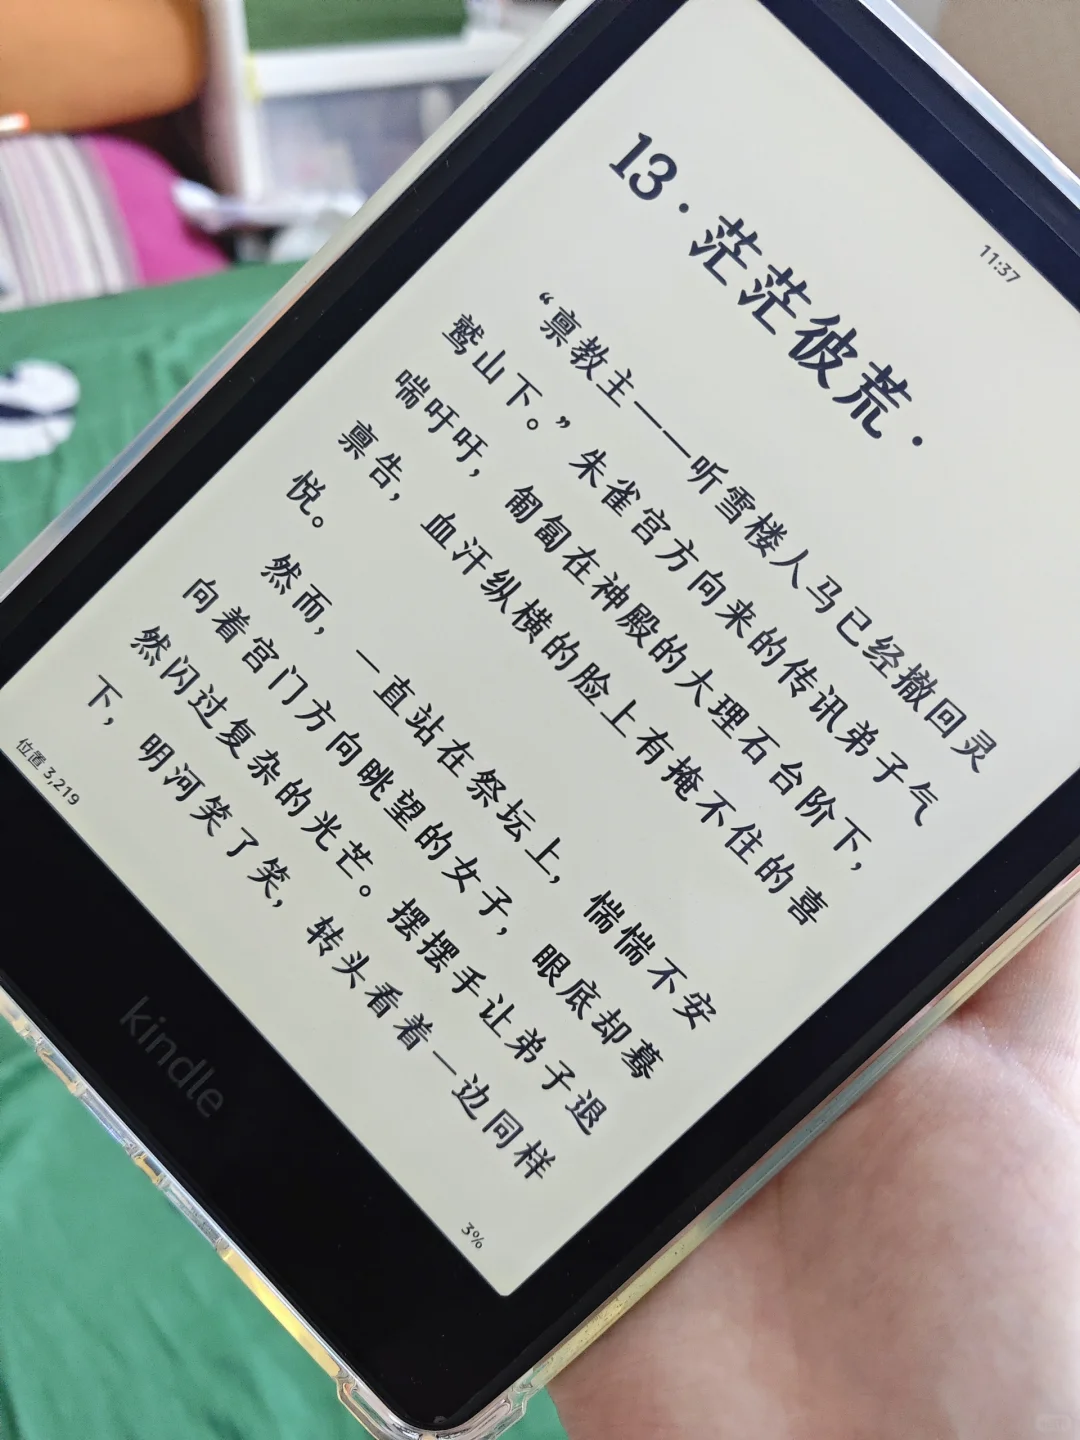 11:37
13·茫茫彼荒·
“禀教主——听雪楼人马已经撤回灵
鹫山下。”朱雀宫方向来的传讯弟子气
喘吁吁，匍匐在神殿的大理石台阶下，
禀告，血汗纵横的脸上有掩不住的喜
悦。
然而，一直站在祭坛上，惴惴不安
向着宫门方向眺望的女子，眼底却蓦
然闪过复杂的光芒。摆摆手让弟子退
下，明河笑了笑，转头看着一边同样
位置 3,219
3%
kindle